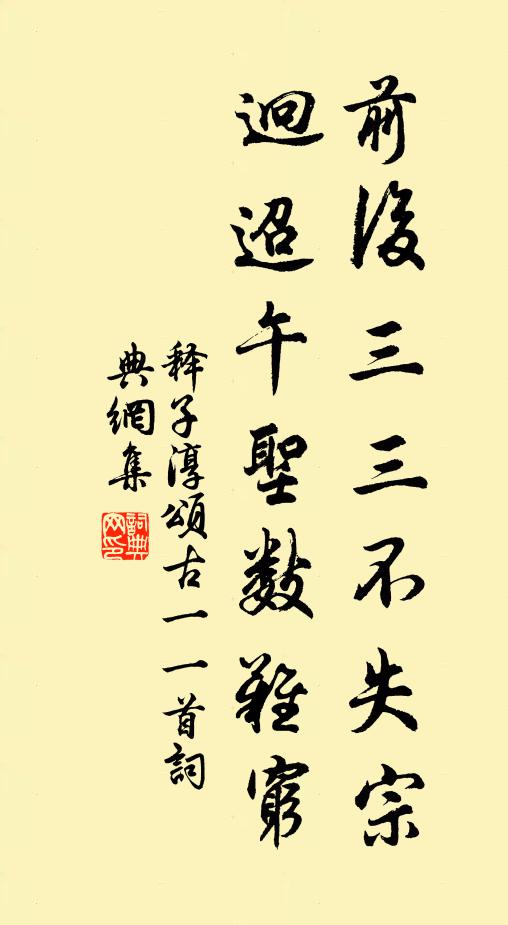 前後三三不失宗
逈迢午聖數難窮
释子淳頌古一一首詞
典網集
詞典网印